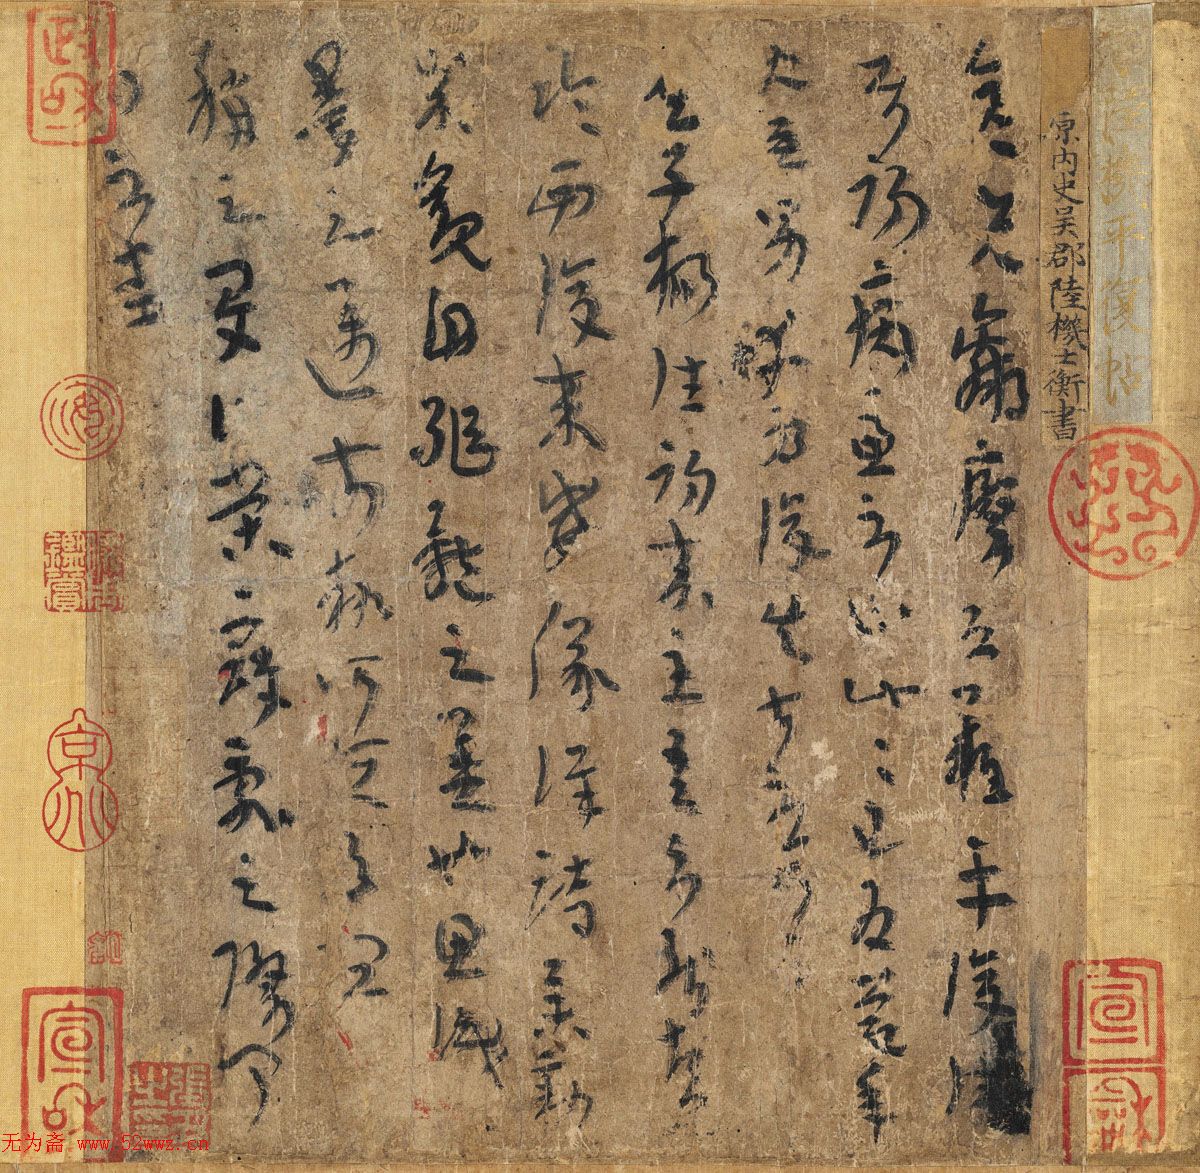 晉陸機平復帖
原內史吳郡陸機士衡書
彦先羸瘵恐難平復往
屬初病慮不止此此已為慶承
使唯男幸為復失前憂耳
吳子楊往初來主吾不能盡
臨西復來威儀詳跱舉動
成觀自軀體之美也思識
量之邁前執所恒有宜
稱之夏伯榮寇亂之際聞
問不悉
政和
宣和
宣和
无为斋 www.52wwz.cn